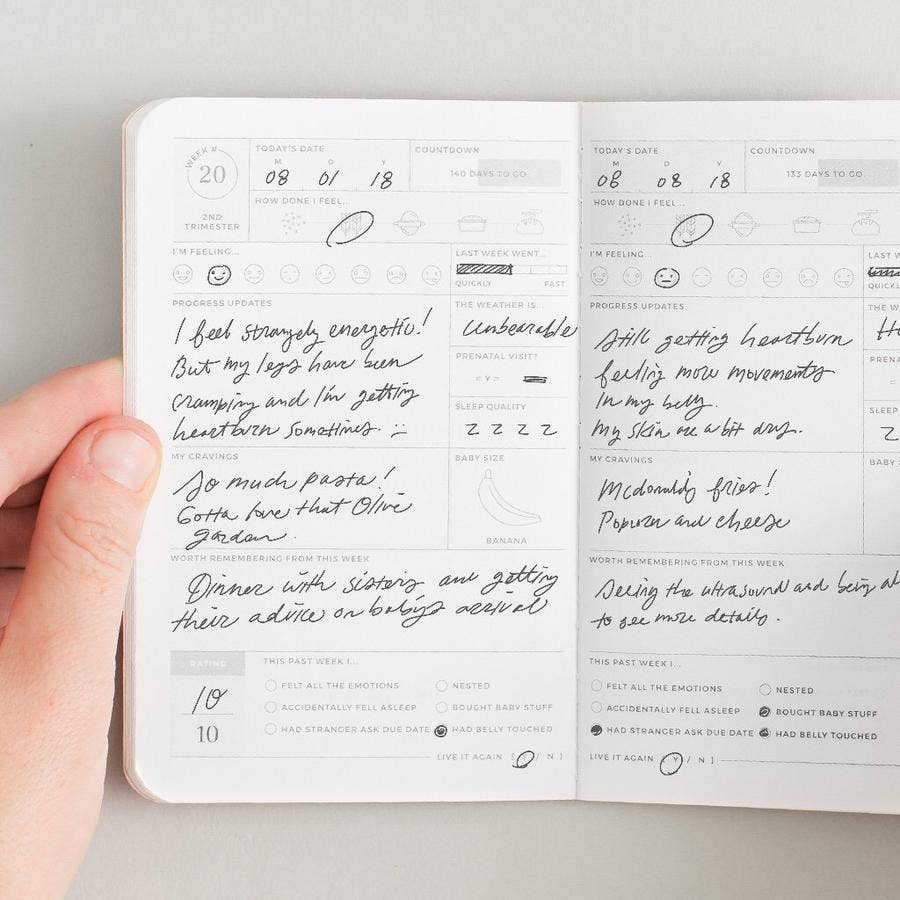 WEEK #
20
2ND
TRIMESTER
TODAY'S DATE
M D Y
08 01 18
COUNTDOWN
140 DAYS TO GO
HOW DONE I FEEL...
I'M FEELING...
LAST WEEK WENT...
QUICKLY FAST
PROGRESS UPDATES
I feel strangely energetic!
But my legs have been
cramping and I'm getting
heartburn sometimes. :-
THE WEATHER IS...
Unbearable
PRENATAL VISIT?
- Y -
SLEEP QUALITY
Z Z Z Z
MY CRAVINGS
So much pasta!
Gotta love that Olive
garden.
BABY SIZE
BANANA
WORTH REMEMBERING FROM THIS WEEK
Dinner with sisters and getting
their advice on baby's arrival
RATING
10
10
THIS PAST WEEK I...
FELT ALL THE EMOTIONS NESTED
ACCIDENTALLY FELL ASLEEP BOUGHT BABY STUFF
HAD STRANGER ASK DUE DATE HAD BELLY TOUCHED
LIVE IT AGAIN [ Y / N ]
TODAY'S DATE
M D Y
08 08 18
COUNTDOWN
133 DAYS TO GO
HOW DONE I FEEL...
I'M FEELING...
LAST W
QUICKL
PROGRESS UPDATES
Still getting heartburn
feeling more movements
In my belly.
my skin are a bit dry.
THE W
PRENA
SLEEP
Z
MY CRAVINGS
Mcdonald's fries!
Popcorn and cheese
BABY S
WORTH REMEMBERING FROM THIS WEEK
Seeing the ultrasound and being
to see more details.
THIS PAST WEEK I...
FELT ALL THE EMOTIONS NESTED
ACCIDENTALLY FELL ASLEEP BOUGHT BABY STUFF
HAD STRANGER ASK DUE DATE HAD BELLY TOUCHED
LIVE IT AGAIN [ Y / N ]